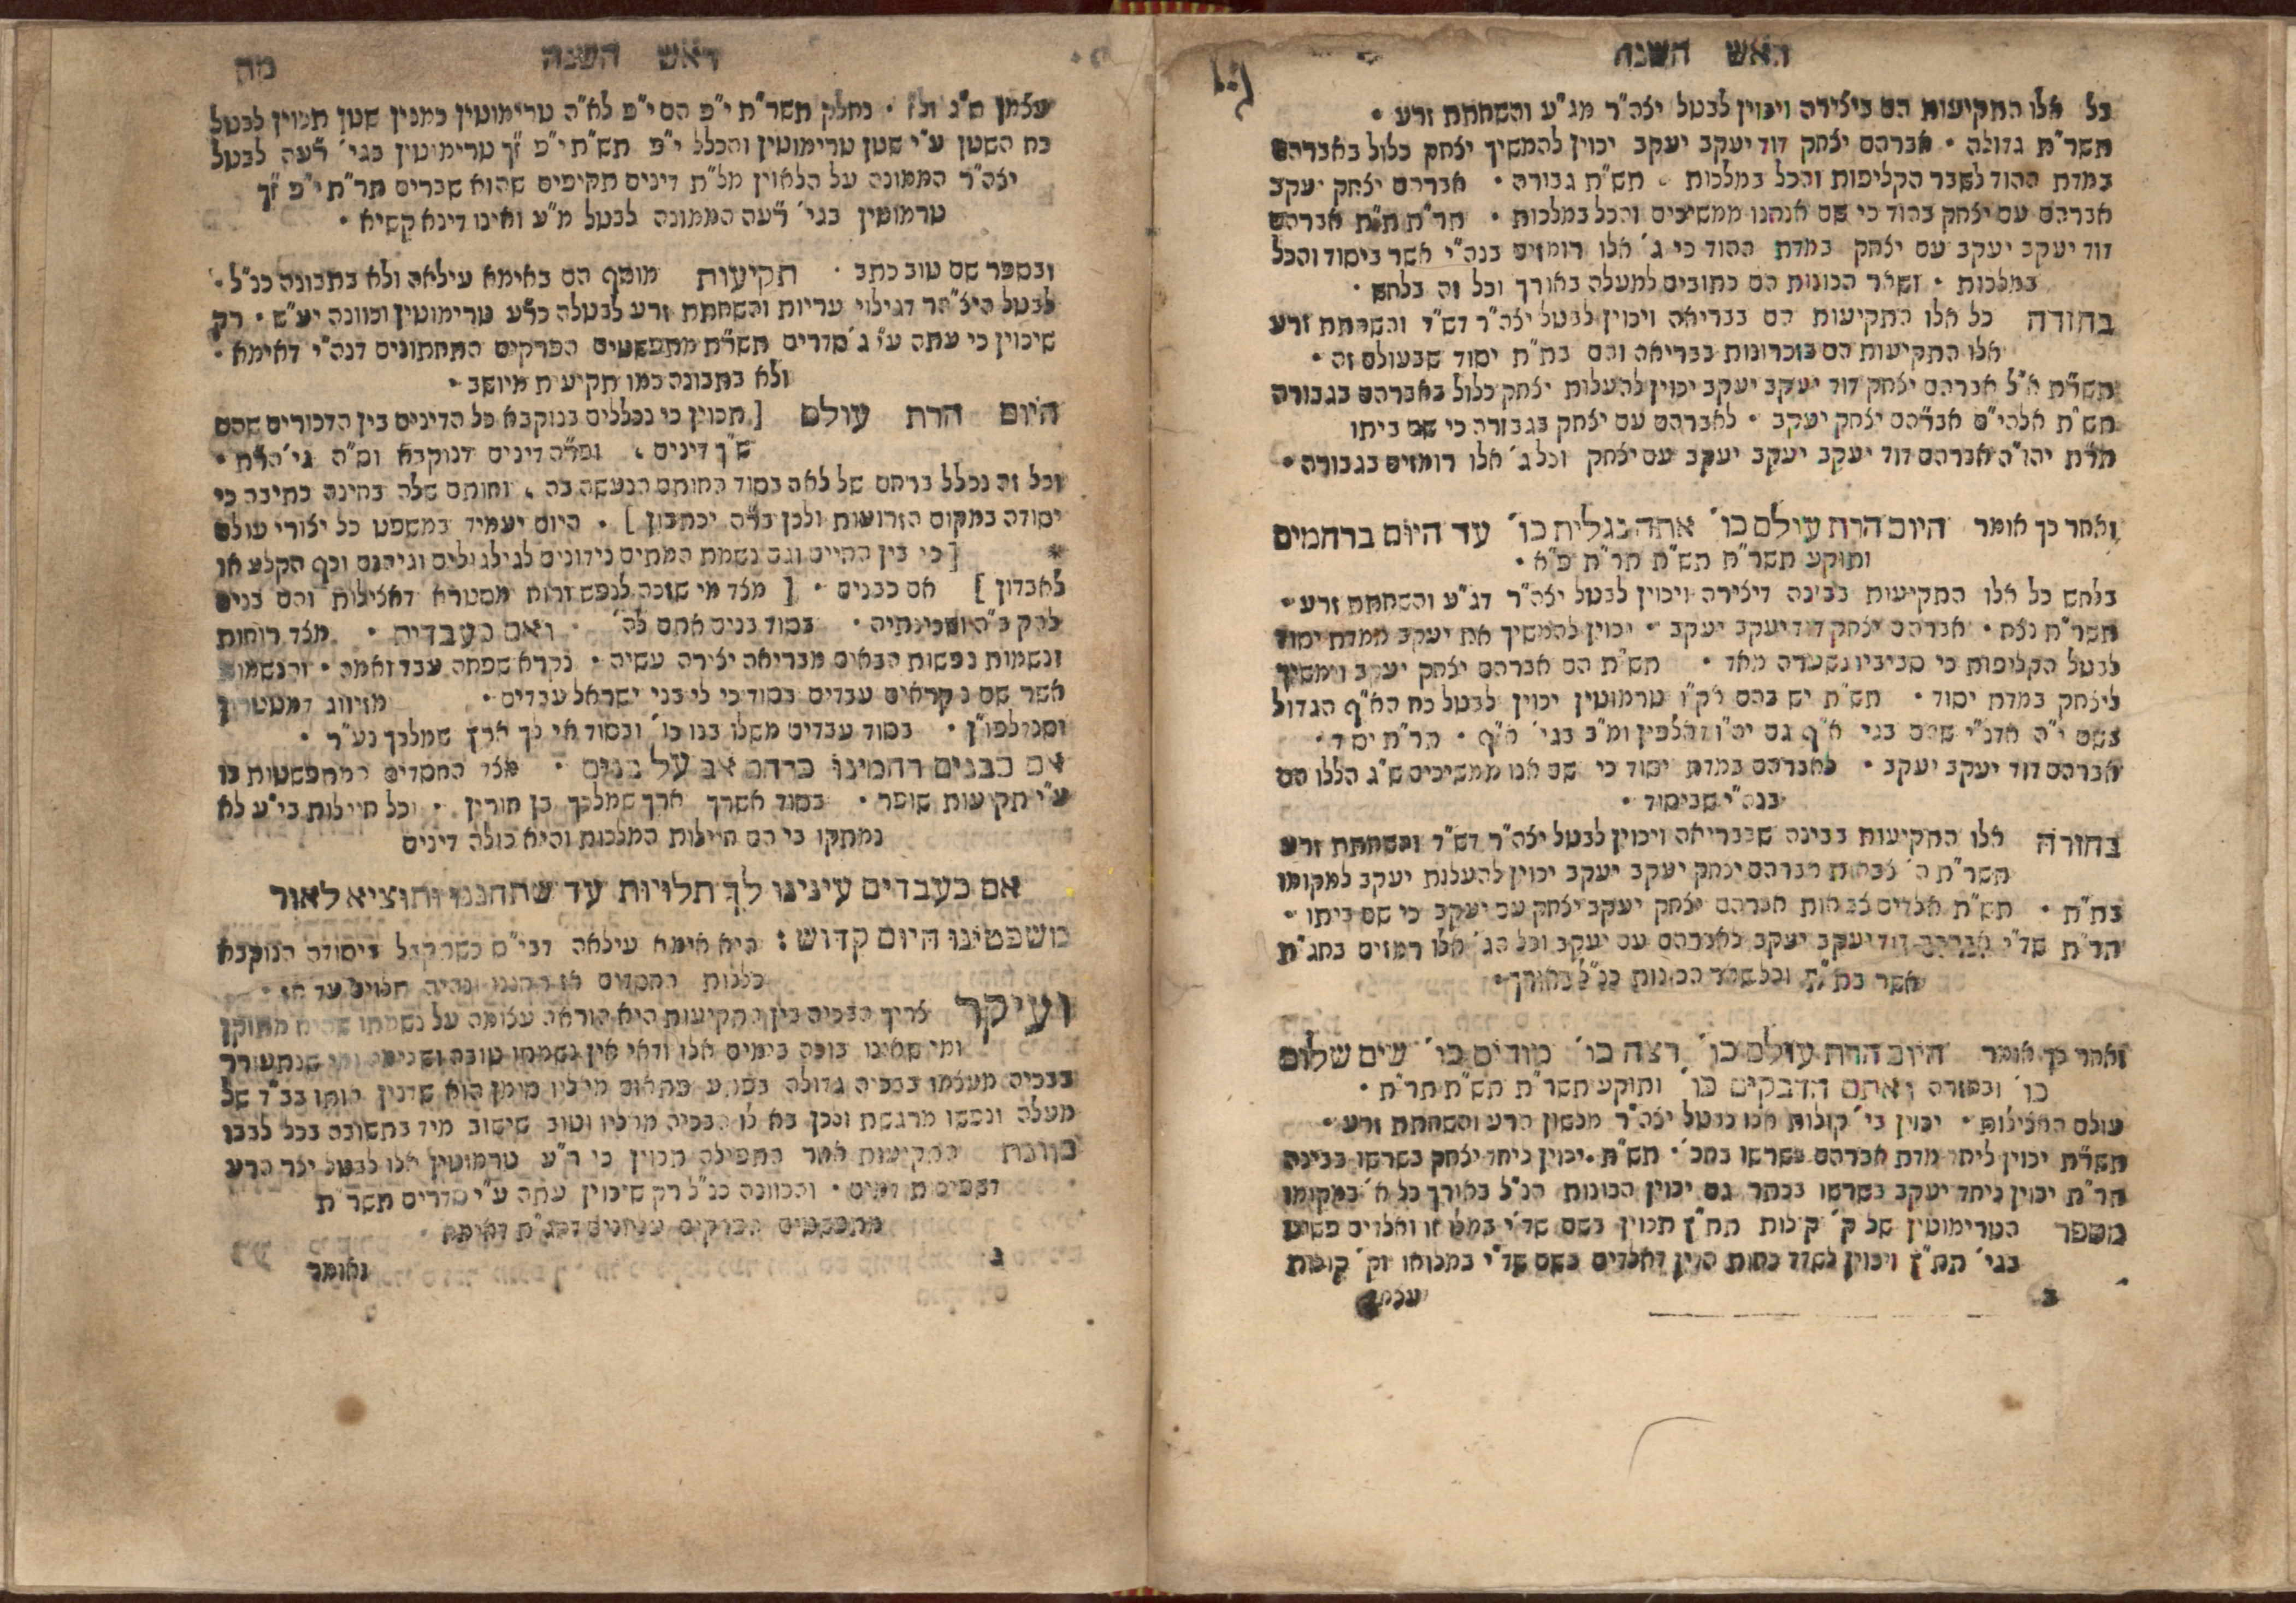 ראש השנה
כל אלו התקיעות הם ביצירה ויכוין לבטל יצה"ר מג"ע והשחתת זרע •
תשר"ת גדולה • אברהם יצחק דוד יעקב יעקב יכוין להמשיך יצחק כלול באברהם
במדת ההוד לשבר הקליפות והכל במלכות • תש"ת גבורה • אברהם יצחק יעקב
אברהם עם יצחק בהוד כי שם אנחנו ממשיכים והכל במלכות • תר"ת ת"ת אברהם
דוד יעקב יעקב עם יצחק במדת ההוד כי ג' אלו רומזים בנה"י אשר ביסוד והכל
במלכות • ושאר הכונות הם כתובים למעלה באורך וכל זה בלחש •
בחזרה כל אלו התקיעות הם בבריאה ויכוין לבטל יצה"ר דש"ד והשחתת זרע
אלו התקיעות הם בזכרונות בבריאה והם בת"ת יסוד שבעולם זה •
תשר"ת א"ל אברהם יצחק דוד יעקב יעקב יכוין להעלות יצחק כלול באברהם בגבורה
תש"ת אלהי"ם אברהם יצחק יעקב • לאברהם עם יצחק בגבורה כי שם ביתו
תר"ת יהו"ה אברהם דוד יעקב יעקב יעקב עם יצחק וכל ג' אלו רומזים בגבורה •
ואחר כך אומר היום הרת עולם כו' אתה נגלית כו' עד היום ברחמים
ותוקע תשר"ת תש"ת תר"ת פ"א •
בלחש כל אלו התקיעות בבינה דיצירה ויכוין לבטל יצה"ר דג"ע והשחתת זרע •
תשר"ת נצח • אברהם יצחק דוד יעקב יעקב • יכוין להמשיך את יעקב ממדת יסוד
לבטל הקליפות כי סביביו נשערה מאד • תש"ת הם אברהם יצחק יעקב וימשיך
ליצחק במדת יסוד • תש"ת יש בהם רק"ו טרמוטין יכוין לבטל כח הא"ף הגדול
בשם י"ה אדנ"י שהם בגי' א"ף גם יה"ו דאלפין ומ"ב בגי' א"ף • תר"ת יסוד •
אברהם דוד יעקב יעקב • לאברהם במדת יסוד כי שם אנו ממשיכים ש"ג הללו הם
בנה"י שביסוד •
בחזרה אלו התקיעות בבינה שבבריאה ויכוין לבטל יצה"ר דש"ד והשחתת זרע
תשר"ת ה' צבאות אברהם יצחק יעקב יעקב יכוין להעלות יעקב למקומו
בת"ת • תש"ת אלדים צבאות אברהם יצחק יעקב יצחק עם יעקב כי שם ביתו •
תר"ת שד"י אברהם דוד יעקב יעקב לאברהם עם יעקב וכל הג' אלו רמזים בחג"ת
אשר בת"ת וכל שאר הכונות כנ"ל באורך •
ואחר כך אומר היום הרת עולם כו' רצה כו' מודים כו' שים שלום
כו' ובחזרה ואתם הדבקים כו' ותוקע תשר"ת תש"ת תר"ת •
עולם האצילות • יכוין בי' קולות אלו לבטל יצה"ר מלשון הרע והשחתת זרע •
תשר"ת יכוין ליחד מדת אברהם בשרשו בחכ' • תש"ת יכוין ליחד יצחק בשרשו בבינה
תר"ת יכוין ליחד יעקב בשרשו בכתר גם יכוין הכונות הנ"ל באורך כל א' במקומו
מספר הטרימוטין של ק' קולות תת"ץ תכוין בשם שד"י במלואו ואלדים פשוט
בגי' תת"ץ ויכוין לשדד כחות הדין דאלדים בשם שד"י במלואו וק' קולות
ב עצמן
ראש השנה מח
עצמן ס"ג ול"ז • נחלק תשר"ת י"פ הם י"פ לא"ה טרימוטין כמנין שטן תכוין לבטל
כח השטן ע"י שטן טרימוטין והכלל י"פ תש"ת י"פ ז"ך טרימוטין בגי' רעה לבטל
יצה"ר הממונה על הלאוין מל"ת דינים תקיפים שהוא שברים תר"ת י"פ ז"ך
טרמוטין בגי' רעה הממונה לבטל מ"ע ואינו דינא קשיא •
ובספר שם טוב כתב • תקיעות מוסף הם באימא עילאה ולא בתבונה כנ"ל •
לבטל היצ"הר דגילוי עריות והשחתת זרע לבטלה כר"ע טרימוטין וכוונה יע"ש • רק
שיכוין כי עתה ע"י ג' סדרים תשר"ת מתפשטים הפרקים התחתונים דנה"י דאימא •
ולא בתבונה כמו תקיעת מיושב •
היום הרת עולם [ תכוין כי נכללים בנוקבא כל הדינים בין הדכורים שהם
ש"ך דינים • ופר"ה דינים דנוקבא וס"ה גי' הר"ת •
וכל זה נכלל ברחם של לאה בסוד החותם הנעשה בה • וחותם שלה בחינה כתיבה כי
יסודה במקום הזרועות ולכן בר"ה יכתבון ] • היום יעמיד במשפט כל יצורי עולם
* [ כי בין החיים וגם נשמת המתים נידונים לגילגולים וגיהנם וכף הקלע או
לאבדון ] אם כבנים • [ מצד מי שזכה לנפש ורוח מסטרא דאצילות והם בנים
להק ב"ה ושכינתיה • בסוד בנים אתם לה' • ואם כעבדים • מצד רוחות
ונשמות נפשות הבאים מבריאה יצירה עשיה • נקרא שפחה עבד ואמה • והנשמות
אשר שם נקראים עבדים בסוד כי לי בני ישראל עבדים • מזיווג דמטטרון
וסנדלפו"ן • בסוד עבדים משלו בנו כו' ובסוד אי לך ארץ שמלכך נע"ר •
אם כבנים רחמינו כרחם אב על בנים • מצד החסדים המתפשטות בו
ע"י תקיעות שופר • בסוד אשרך ארץ שמלכך בן חורין • וכל חיילות בי"ע לא
נמתקו כי הם חיילות המלכות והיא כולה דינים
אם כעבדים עינינו לך תלויות עד שתחננו ותוציא לאור
משפטינו היום קדוש : היא אימא עילאה דבי"ם כשתקבל ביסודה הנוקבא
כללות החסדים אז תחננו ונהיה תלוים עד אז •
ועיקר צריך הבכיה בין התקיעות היא הוראה עצומה על נשמתו שהיא מתוקן
ומי שאינו בוכה בימים אלו ודאי אין נשמתו טובה ושלימה ומי שנתעורר
בבכיה מעצמו בבכיה גדולה בשמע פתאום מאליו סימן הוא שדנין אותו בב"ד של
מעלה ונפשו מרגשת ולכן בא לו הבכיה מאליו וטוב שישוב מיד בתשובה בכל לבבו
כוונת התקיעות אחר התפילה תכוין כי ר"ע טרמוטין אלו לבטל יצר הרע
דשפיכת דמים • והכוונה כנ"ל רק שיכוין עתה ע"י סדרים תשר"ת
מתפשטים הפרקים עליונים דחג"ת דאימא •
ב ואומר